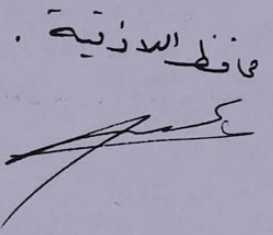 محافظ اللاذقية .